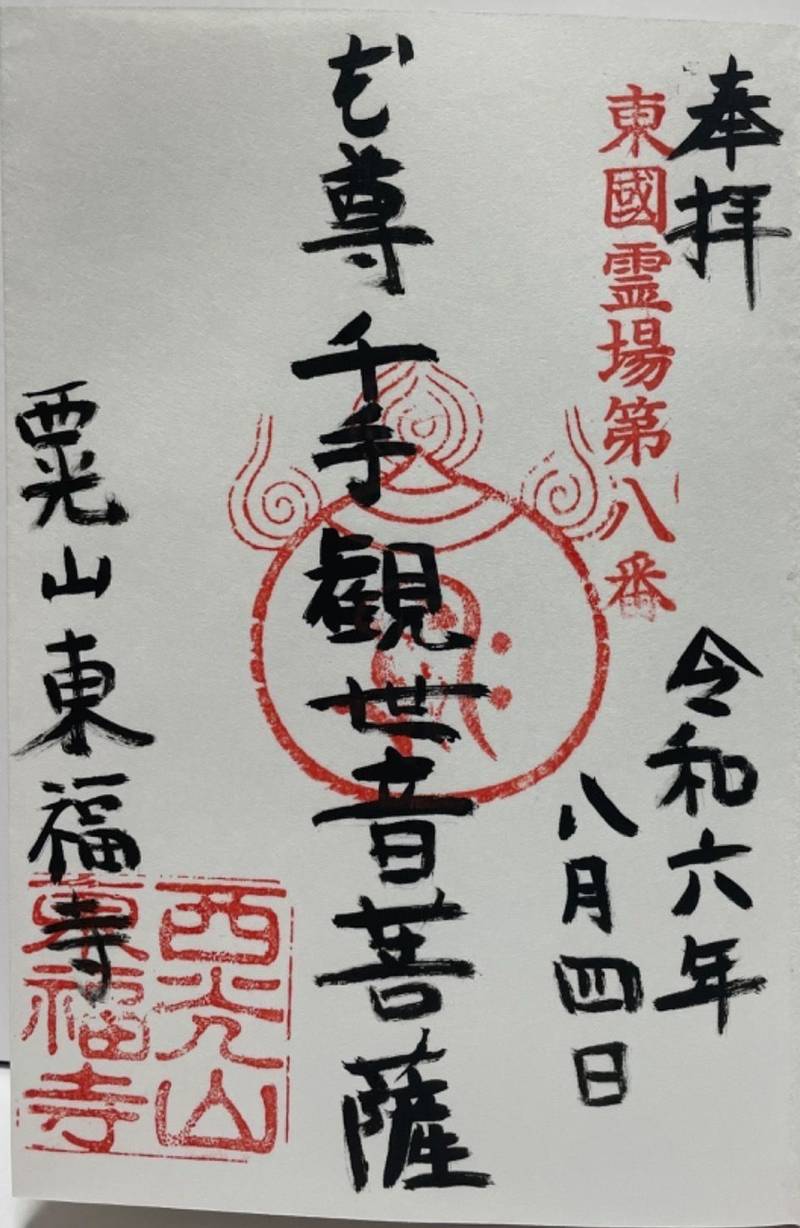 奉拝
東國霊場第八番
令和六年
八月四日
本尊千手観世音菩薩
西光山東福寺
西光山
東福寺